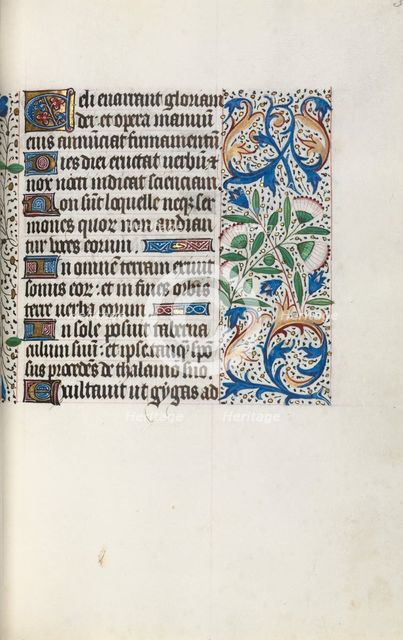 Celi enarrant gloriam
dei: et opera manuũ
eius annũciat firmamentũ.
Dies diei eructat verbũ: &
nox nocti indicat sciẽciam.
Non sũt loquelle neq; ser
mones quor non audian
tur voces eorum.
In omnẽ terram exiuit
sonus eor: et in fines orbis
terre verba eorum.
In sole posuit taberna
culum suũ: et ipse tanq̃ spõ
sus procedẽs de thalamo suo.
Exultauit ut gygas ad
Heritage Heritage
Heritage Heritage